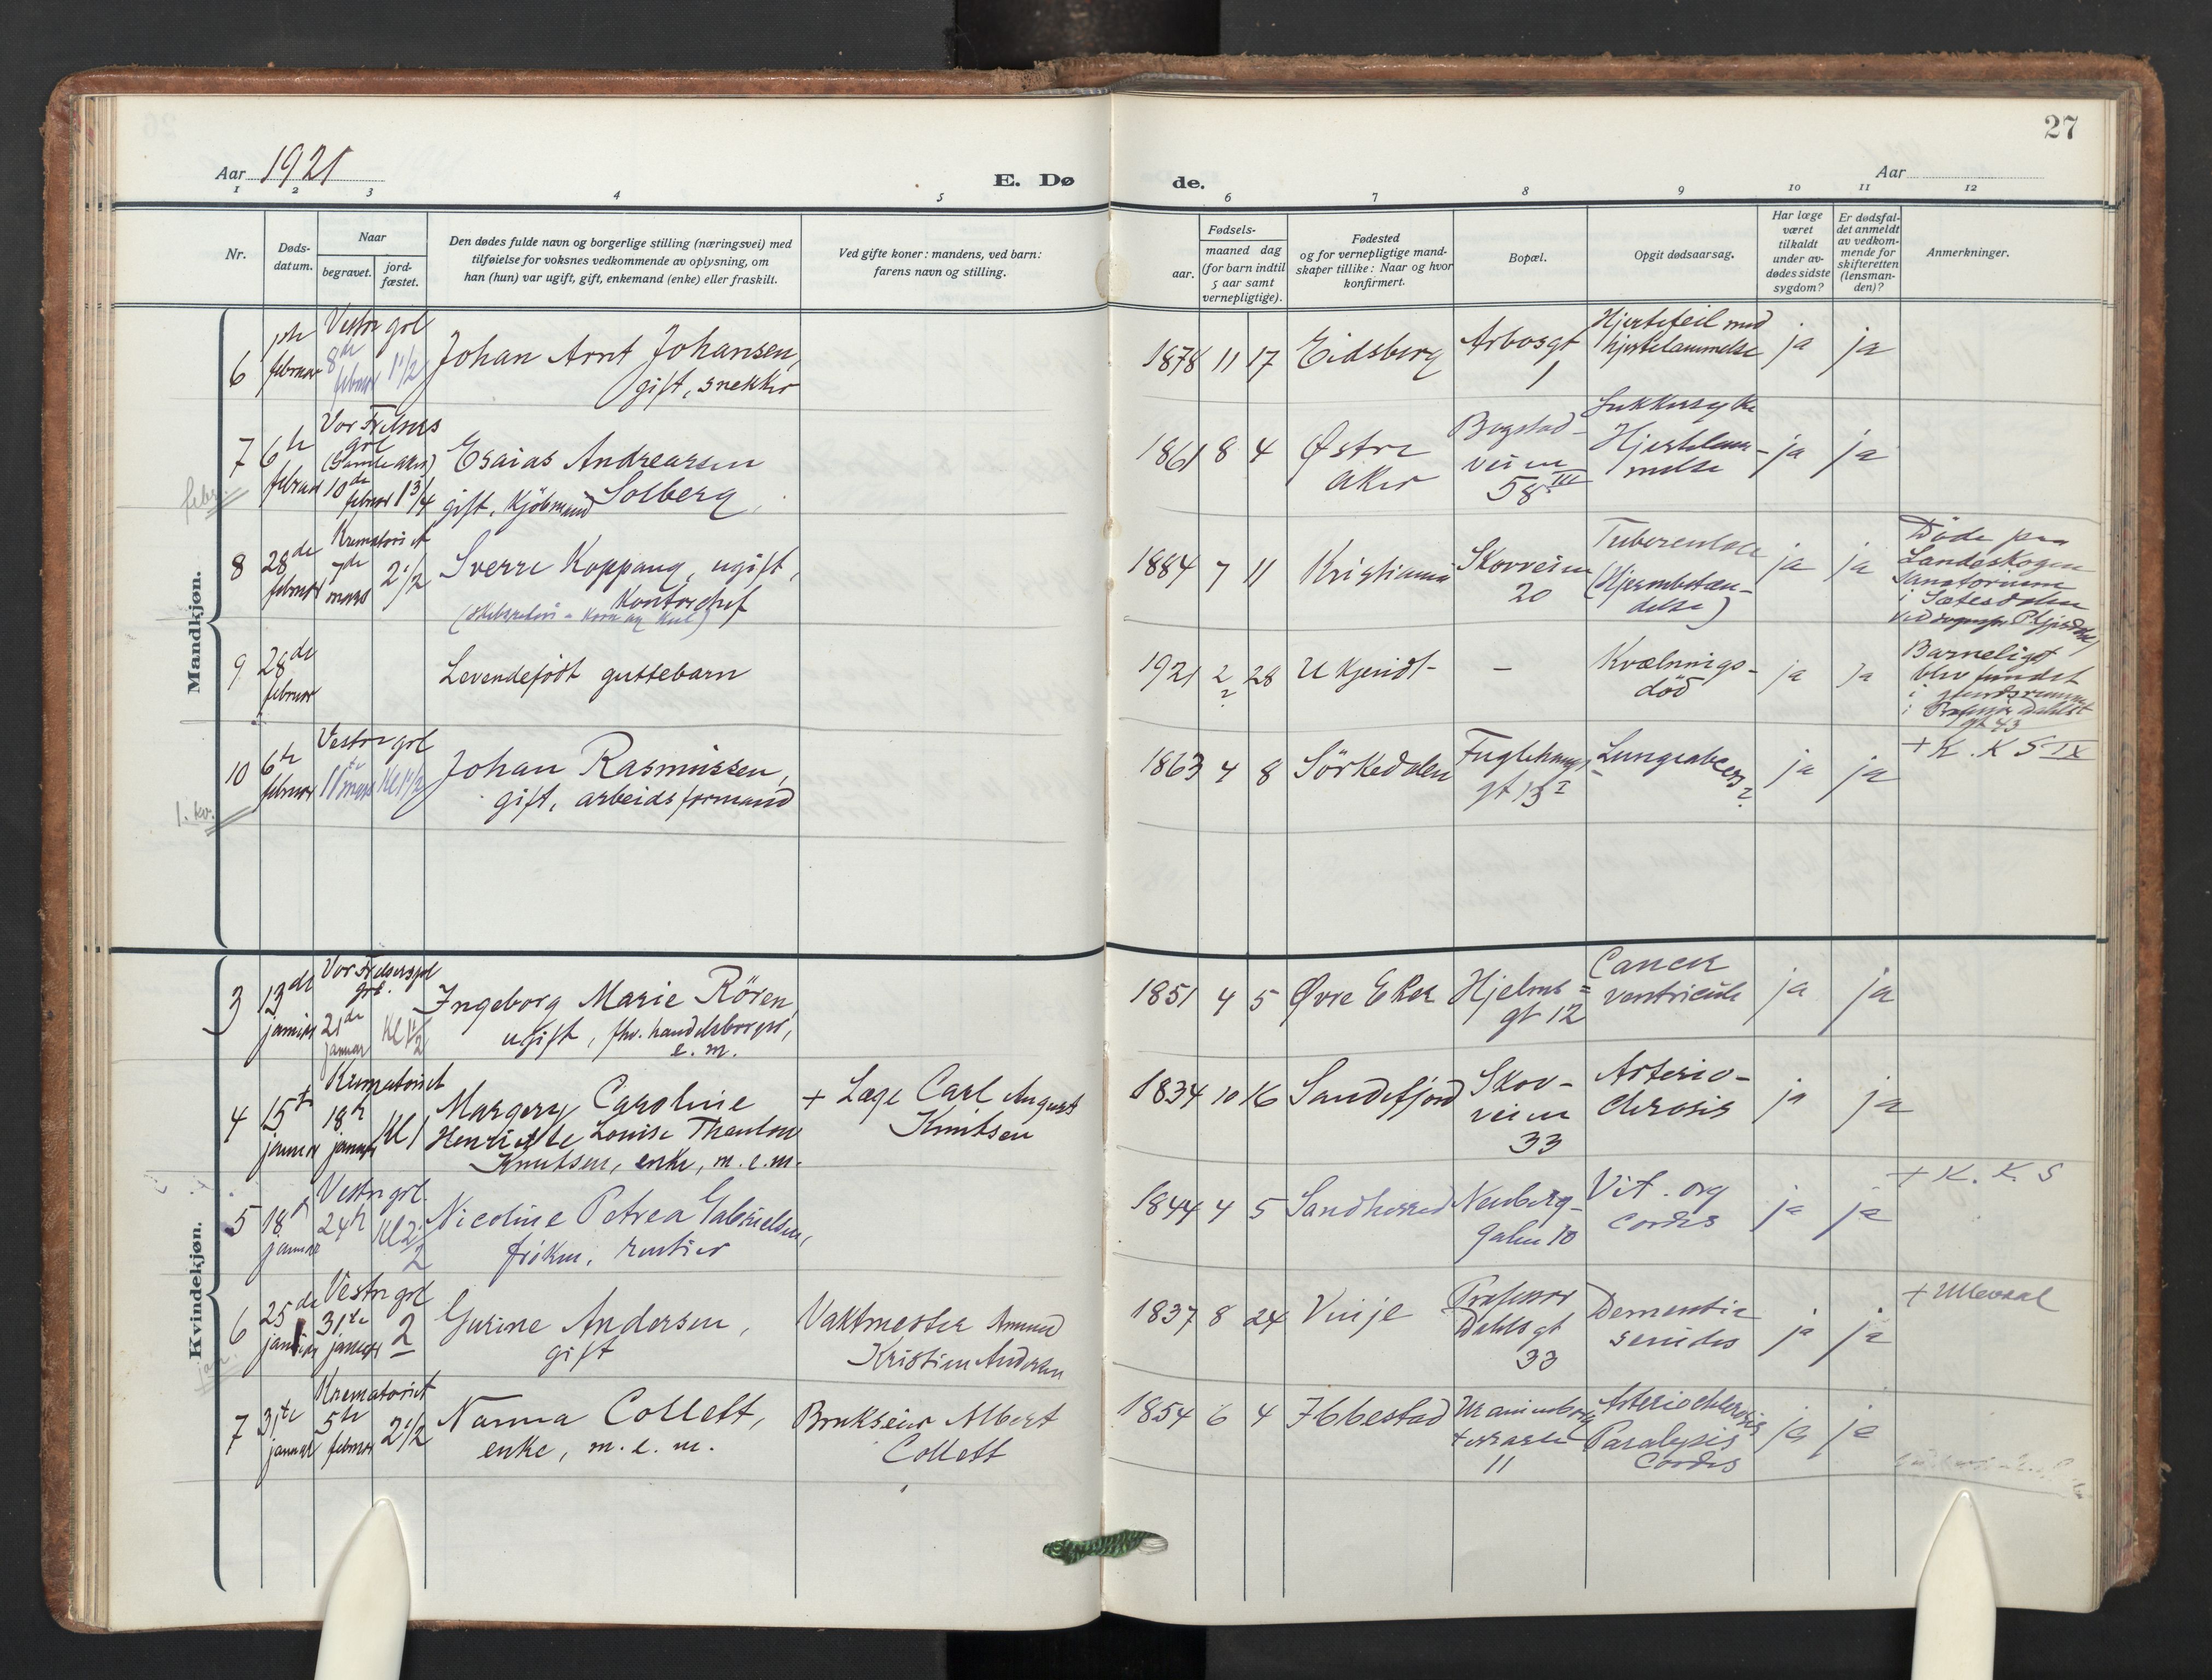 27
Aar 1921
E. Dø
de.
Aar
1 2 3 4 5 6 7 8 9 10 11 12
Nr.
Døds-
datum.
Naar
begravet.
jord-
fæstet.
Den dødes fulde navn og borgerlige stilling (næringsvei) med
tilføielse for voksnes vedkommende av oplysning, om
han (hun) var ugift, gift, enkemand (enke) eller fraskilt.
Ved gifte koner: mandens, ved barn:
farens navn og stilling.
Fødsels-
aar.
maaned dag
(for barn indtil
5 aar samt
vernepligtige).
Fødested
og for vernepligtige mand-
skaper tillike: Naar og hvor
konfirmert.
Bopæl.
Opgit dødsaarsag.
Har læge
været
tilkaldt
under av-
dødes sidste
sygdom?
Er dødsfal-
det anmeldt
av vedkom-
mende for
skifteretten
(lensman-
den)?
Anmerkninger.
Mandkjøn.
6
februar
Vestre grl
8de
februar
1 1/2
Johan Arnt Johansen,
gift, snekker
1878 11 17
Eidsberg
Arbosgt
1
Hjertefeil med
hjertelammelse
ja ja
febr.
7
6te
februar
Vor Frelsers
grl
(Gamle aker)
10de
februar
1 3/4
Esaias Andreassen
Solberg
gift, Kjöbmand
1861 8 4
Østre
Aker
Bogstad-
veien
58 III
Sukkersyke
Hjertelam-
melse
ja ja
8
28de
februar
Krematoriet
7de
mars
2 1/2
Sverre Koppang, ugift,
Kontorchef
1884 7 11
Kristiania
Skovveien
20
Tuberculose
(Hjernebetæn-
delse)
ja ja
Døde paa
Landeskogen
Sanatorium
i Sætesdalen
9
28de
februar
Levendefödt guttebarn
1921 2 28
?
Ukjendt
-
Kvælnings-
död
ja ja
Barneliget
blev fundet
i
i Professor Dahls
gt 43
1. kv.
10
6te
februar
Vestre grl
11te mars
Kl 1 1/2
Johan Rasmussen,
gift, arbeidsformand
1863 4 8
Sörkedalen
Fuglehaugs
gt 13 I
Lungeabcess?
ja ja
+ K. K S IX
Kvindekjøn.
3
13de
januar
Vor Frelsers
grl.
21de
januar
Kl 1 1/2
Ingeborg Marie Rören,
ugift, fhv. handelsborger,
e. m.
1851 4 5
Øvre Eker
Hjelms=
gt 12
Cancer
ventriculi
ja ja
4
15te
januar
Krematoriet
18de
januar
Kl 1
Margery Caroline
Henriette Louise Thaulow
Knutsen, enke, m. e. m.
+ Læge Carl August
Knutsen
1834 10 16
Sandefjord
Skov-
veien
33
Arterio-
clerosis
ja ja
5
18de
januar
Vestre grl.
24de
Kl 2 1/2
Nicoline Petrea Gabrielsen,
fröken, rentier
1844 4 5
Sandherred
Neuberg-
gaten 10
Vit. org
cordis
ja ja
+ K. K. S
jan.
6
25de
januar
Vestre grl
31te
januar
2
Gurine Andersen,
gift
Vaktmester Amund
Kristian Andersen
1837 8 24
Vinje
Professor
Dahls gt
33
Dementia
senilis
ja ja
+ Ullevaal
7
31te
januar
Krematoriet
5te
februar
2 1/2
Nanna Collett,
enke, m. e. m.
Brukseier Albert
Collett
1854 6 4
Ibbestad
Uranienborg
terrasse
11
Arterioclerosis
Paralysis
Cordis
ja ja